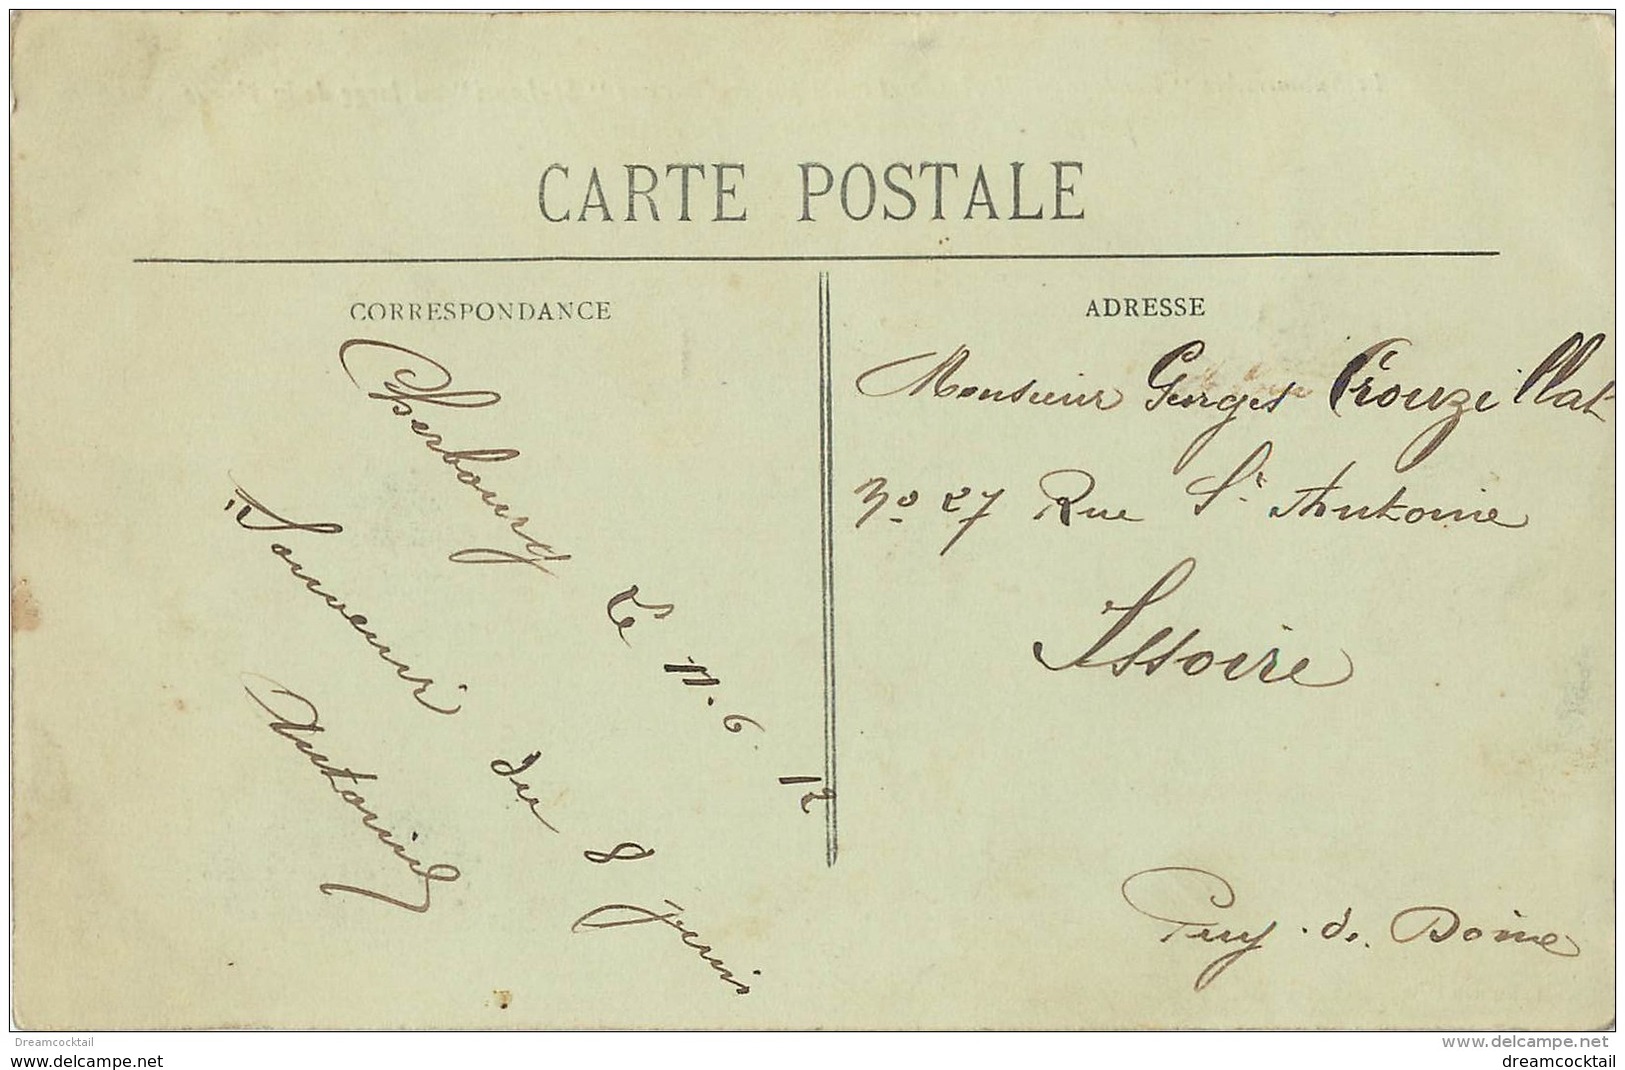 CARTE POSTALE
CORRESPONDANCE
Cherbourg le 11.6.12
Souvenir du 8 juin
Antoine
ADRESSE
Monsieur Georges Crouzillat
No 27 Rue St Antoine
Issoire
Puy.de.Dome
Dreamcocktail
www.delcampe.net
www.delcampe.net
dreamcocktail